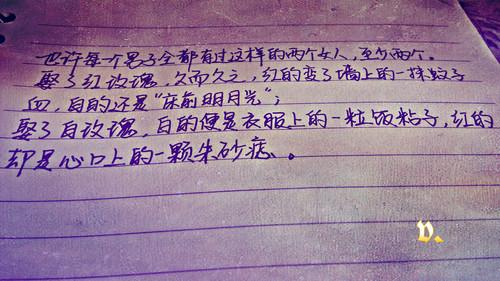 也许每一个男子全都有过这样的两个女人，至少两个。
娶了红玫瑰，久而久之，红的变了墙上的一抹蚊子
血，白的还是“床前明月光”；
娶了白玫瑰，白的便是衣服上的一粒饭粘子，红的
却是心口上的一颗朱砂痣。
v.